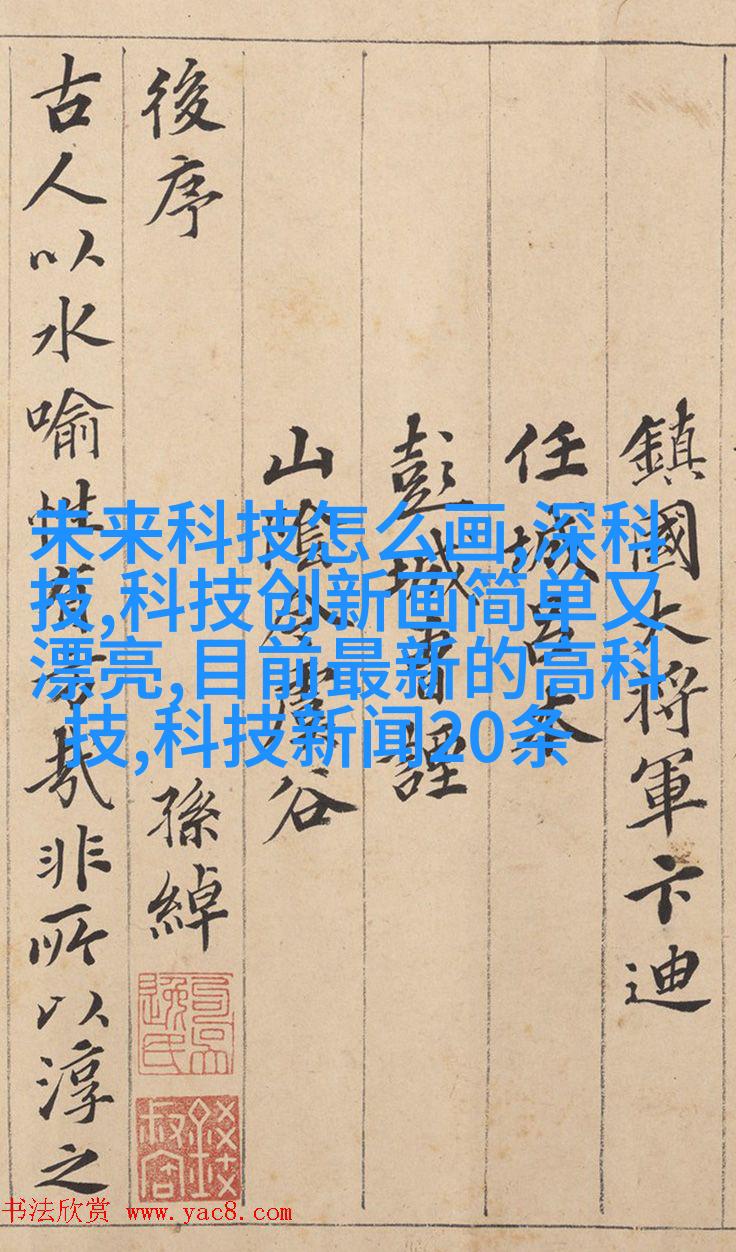 鎮國大将軍卞迪
任城呂本
彭城曹諲
山陰令虞谷
後序 孫綽
古人以水喻性有旨哉非所以淳之
未来科技怎么画,深科
技,科技创新画简单又
漂亮,目前最新的高科
技,科技新闻20条
书法欣赏 www.yac8.com